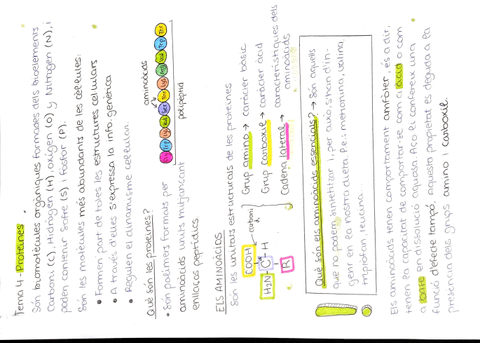 Tema 4 - Proteïnes
Són biomolècules orgàniques formades dels bioelements
Carboni (C), Hidrogen (H), oxigen (O) y Nitrogen (N), i
poden contenir Sofre (S), i fosfor (P).
Són les molècules més abundants de les cèl·lules:
• Formen part de totes les estructures cel·lulars
• A través d'elles s'expressa la info. genètica
• Regulen el dinamisme cel·lular.
Què són les proteïnes?
• Són polímers formats per
aminoàcids units mitjançant
enllaços peptídics
aminoàcids
polipèptid
ELS AMINOÀCIDS
Són les unitats estructurals de les proteïnes
COOH
H₂N - C - H
R
carboni
Grup amino → caràcter bàsic
Grup carboxil → caràcter àcid
Cadena lateral → característiques dels
aminoàcids
Què són els aminoàcids essencials? → Són aquells
que no podem sintetitzar i, per això, s'han d'in-
gerir en la nostra dieta. Per: metionina, valina,
triptòfan, leucina.
Els aminoàcids tenen comportament amfòter, és a dir,
tenen la capacitat de comportar-se com àcid o com
a base en dissolució aquosa. Açò els confereix una
funció d'efecte tampó, aquesta propietat és deguda a la
presència dels grups amino i carboxil.